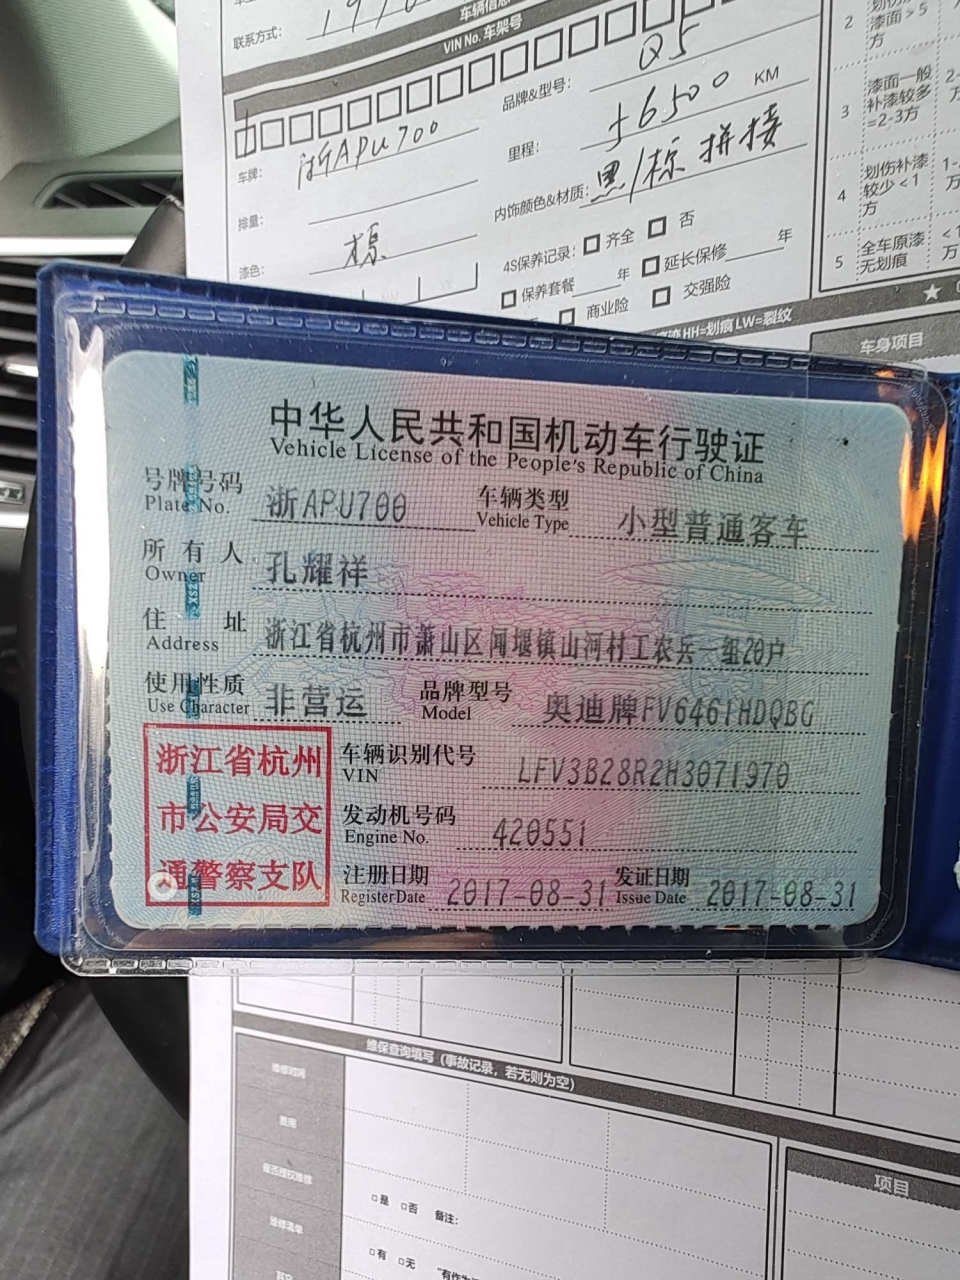 联系方式：
车辆信息
VIN No. 车架号
品牌&型号： Q5
车牌： 浙APU700
里程： 56500 KM
排量：
内饰颜色&材质： 黑/棕 拼接
漆色： 棕
4S保养记录： 齐全 否
保养套餐 年 延长保修 年
商业险 交强险
2 漆面>5
方
3 漆面一般
补漆较多
=2-3方
4 划伤补漆
较少<1
方
5 全车原漆
无划痕
HH=划痕 LW=裂纹
车身项目
中华人民共和国机动车行驶证
Vehicle License of the People's Republic of China
号牌号码 浙APU700 车辆类型 小型普通客车
Plate No. Vehicle Type
所有人 孔耀祥
Owner
住址 浙江省杭州市萧山区闻堰镇山河村工农兵一组20户
Address
使用性质 非营运 品牌型号 奥迪牌FV6461HDQBG
Use Character Model
浙江省杭州
市公安局交
通警察支队
车辆识别代号 LFV3B28R2H3071970
VIN
发动机号码 420551
Engine No.
注册日期 2017-08-31 发证日期 2017-08-31
Register Date Issue Date
维保查询填写（事故记录，若无则为空）
维修时间
费用
维修清单
是 否 备注：
有 无
项目